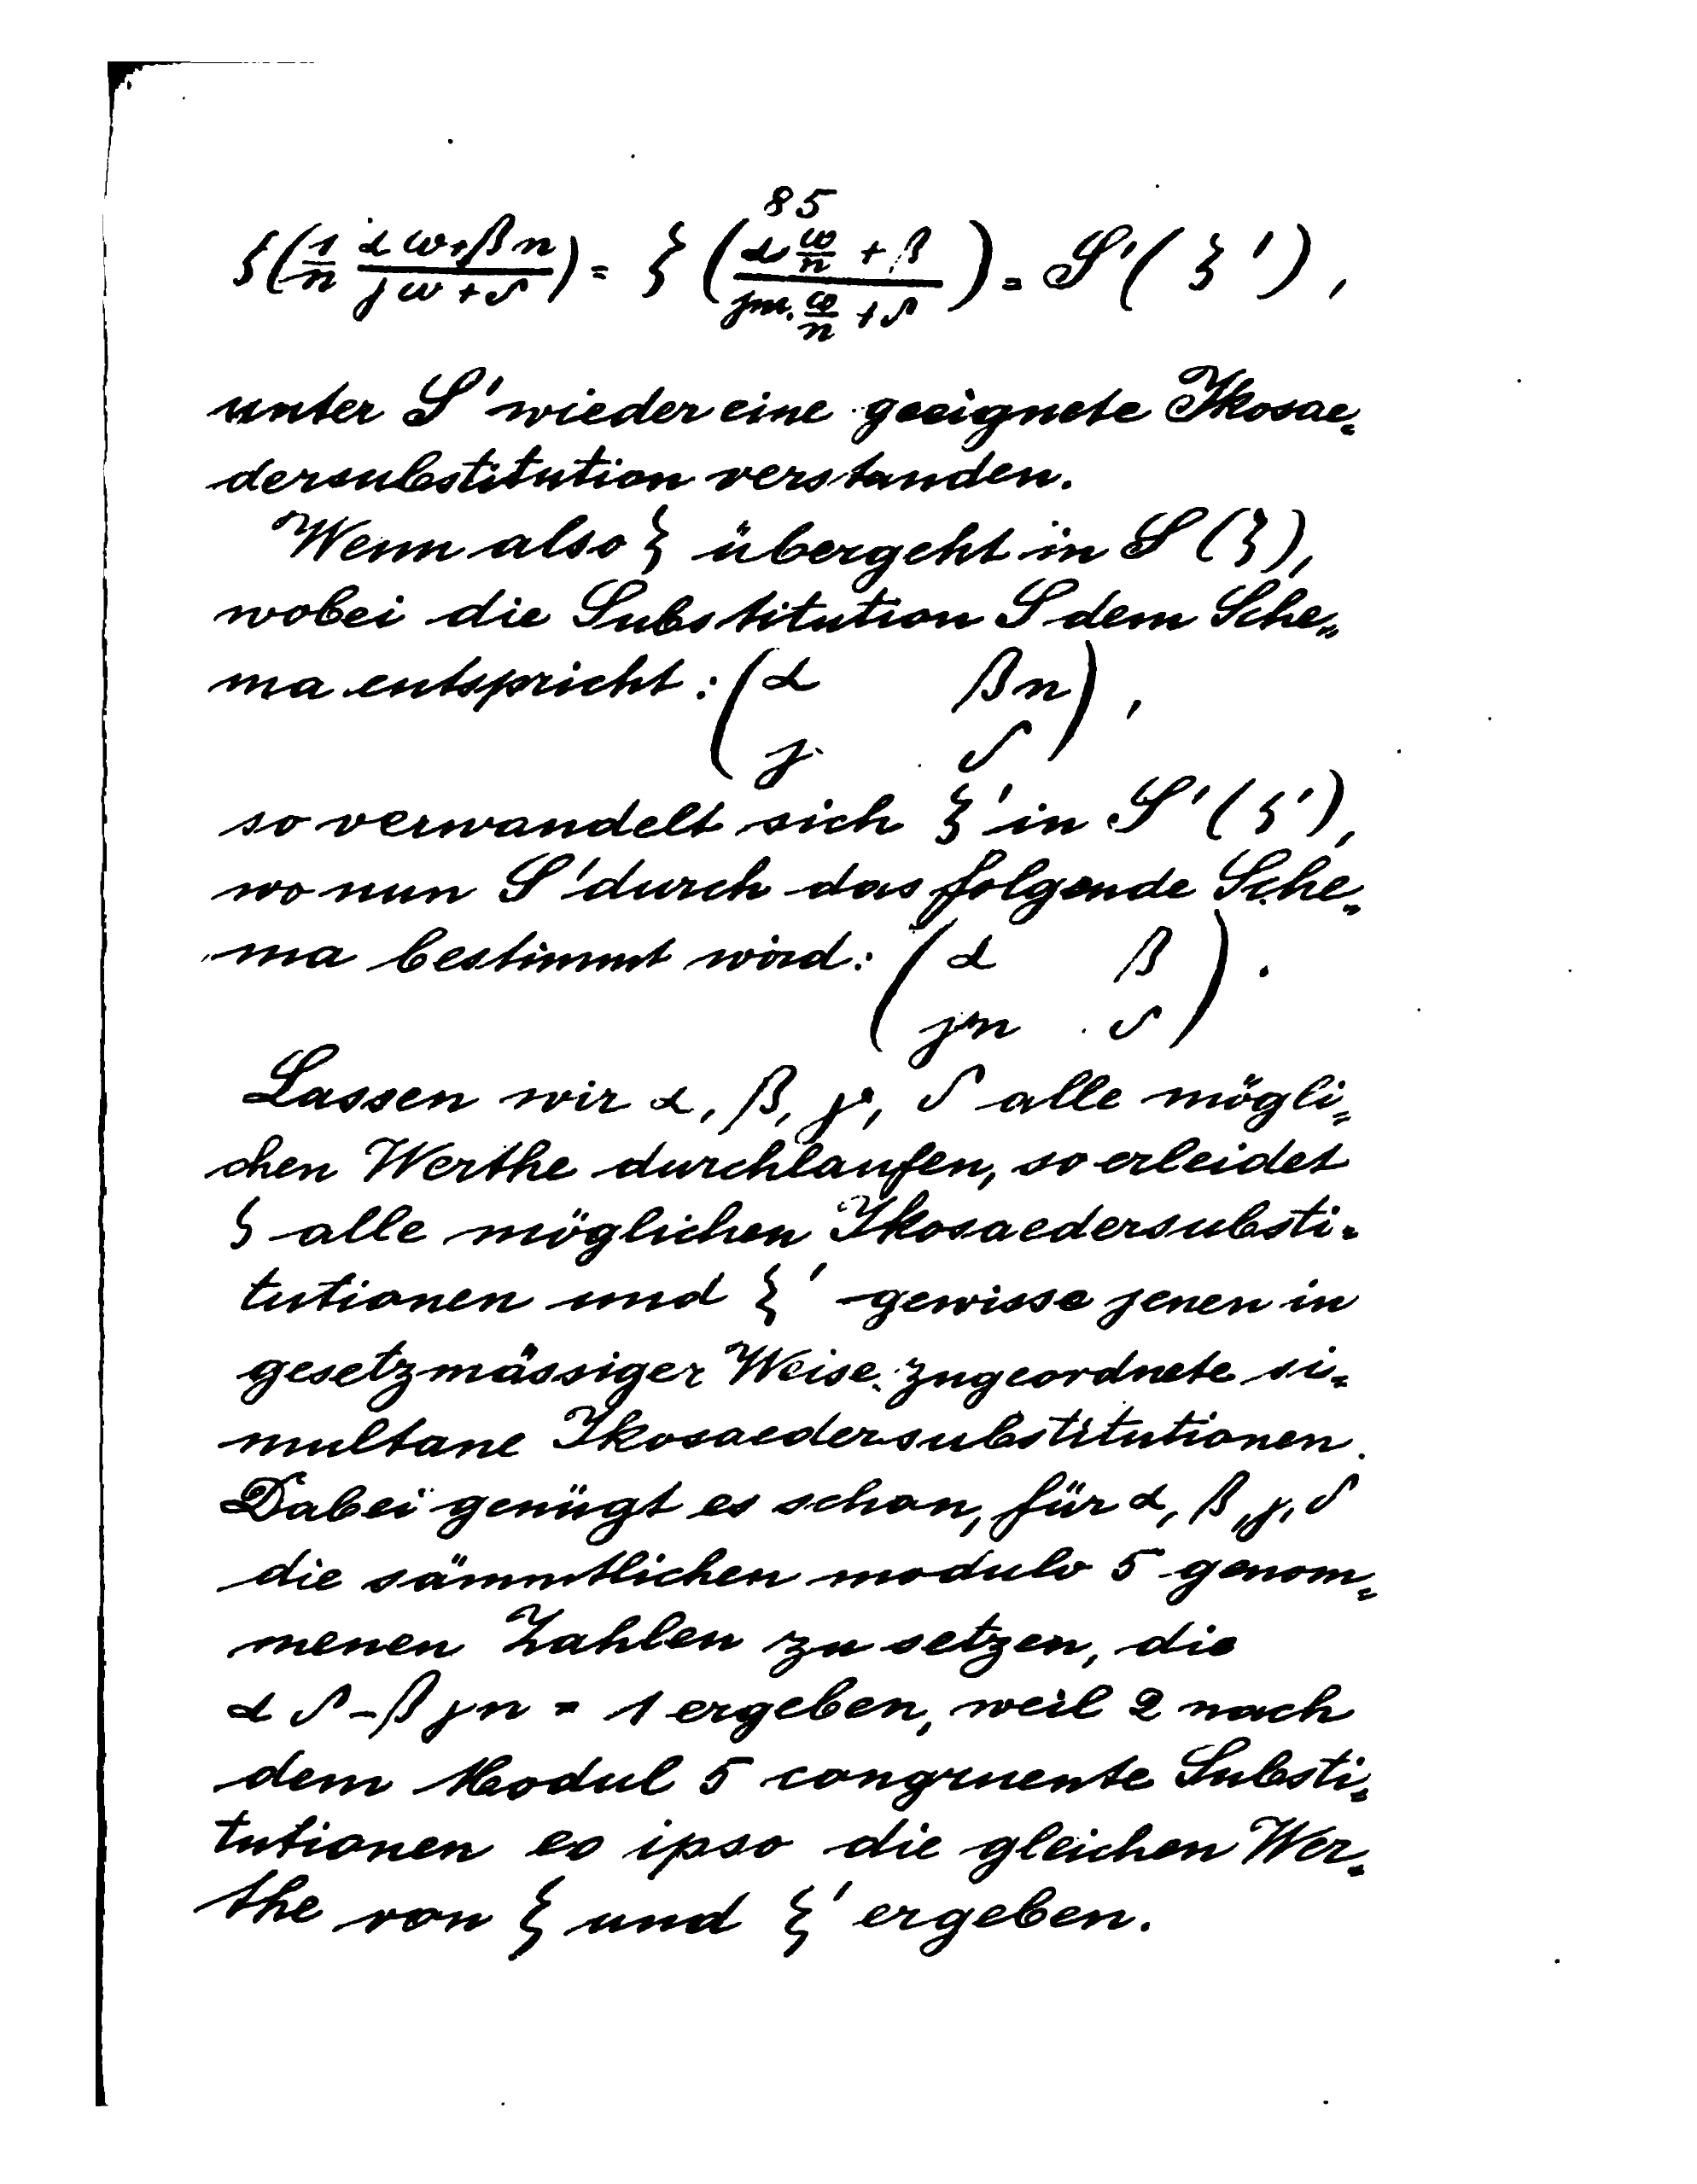 85
ξ(1/n αω+βn/γω+δ) = ξ(α ω/n + β / γn. ω/n + δ) = S'(ξ'),
unter S' wieder eine geeignete Ikosae=
dersubstitution verstanden.
Wenn also ξ übergeht in S(ξ),
wobei die Substitution S dem Sche=
ma entspricht: (α βn),
(γ δ)
so verwandelt sich ξ' in S'(ξ'),
wo nun S' durch das folgende Sche=
ma bestimmt wird: (α β).
(γn δ)
Lassen wir α, β, γ, δ alle mögli=
chen Werthe durchlaufen, so erleidet
ξ alle möglichen Ikosaedersubsti=
tutionen und ξ' gewisse jenen in
gesetzmässiger Weise zugeordnete si=
multane Ikosaedersubstitutionen.
Dabei genügt es schon, für α, β, γ, δ
die sämmtlichen modulo 5 genom=
menen Zahlen zu setzen, die
αδ-βγn = 1 ergeben, weil 2 nach
dem Modul 5 congruente Substi=
tutionen eo ipso die gleichen Wer=
the von ξ und ξ' ergeben.